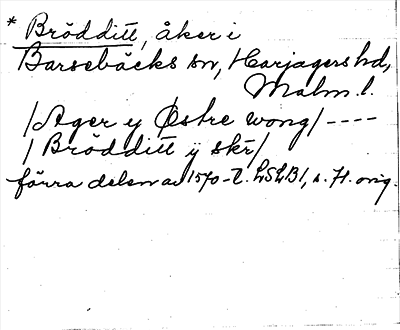 * Brödditt, åker i
Barsebäcks sn, Harjagers hd,
Malm. l.
/Ager y Østre wong/ ----
/ Brödditt ÿ skr/
förra delen av 1570-t. LSLB1, s. 71. orig.